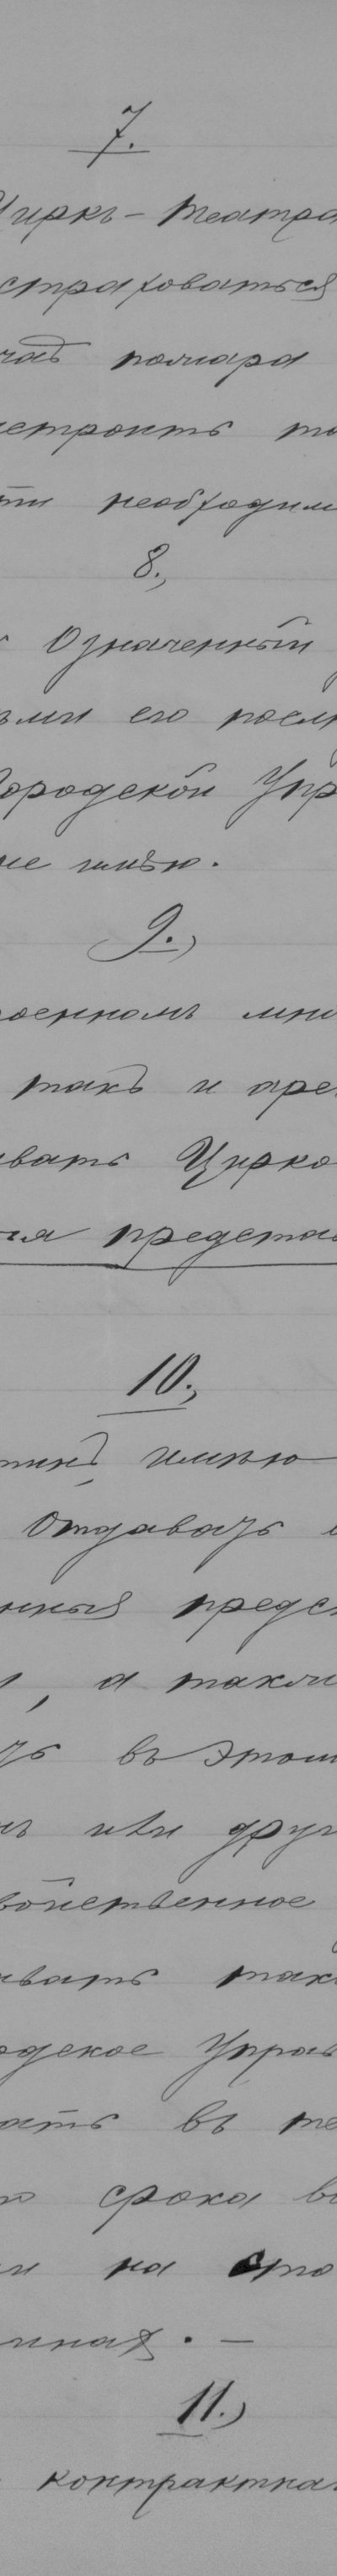 7.
Циркъ-театра
страховаться
чаѣ пожара
устроить то
сти необходим
8.,
Означенный
ьми его посл
Городской Упр
не имѣю.
9.,
роенномъ мн
такъ и аре
ивать Цирко
ся предста
10.,
имѣю
отдавать
нныя предс
, а такж
ть въ этом
ъ или друг
войственное
ивать так
одское Управ
ать въ те
о срока в
и на сто
иная. —
11.,
контрактна